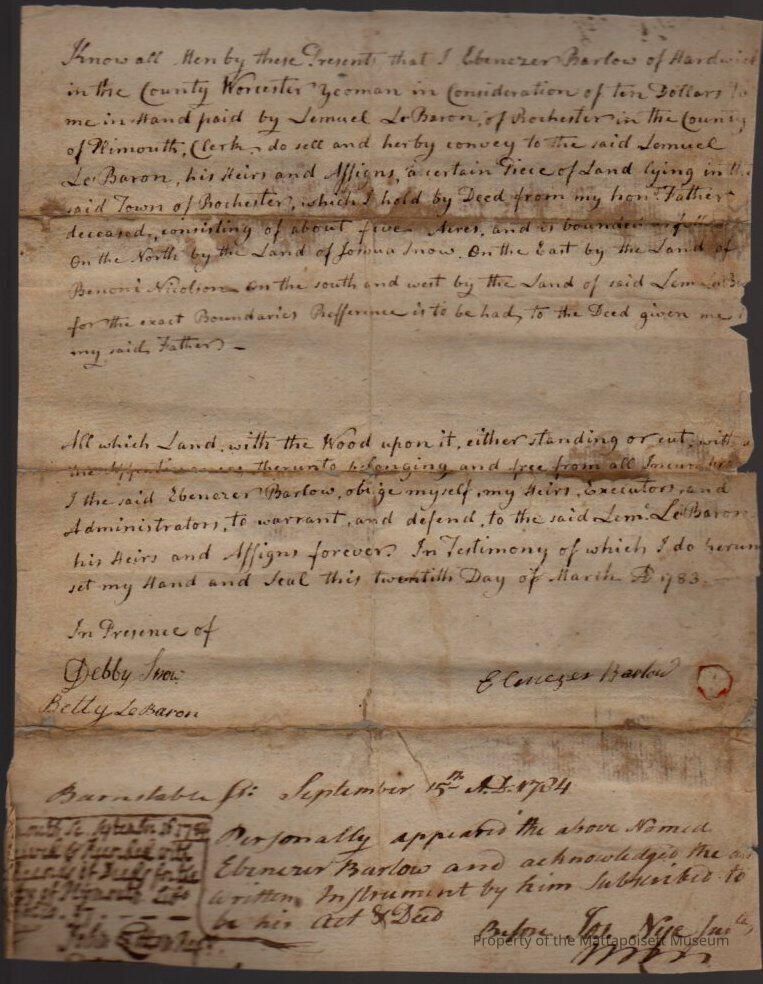 Know all Men by these Presents that I Ebenezer Barlow of Hardwick
in the County Worcester Yeoman in Consideration of ten Dollars to
me in Hand paid by Lemuel LeBaron, of Rochester in the County
of Plimouth, Clerk, do sell and herby convey to the said Lemuel
LeBaron, his Heirs and Assigns, a certain Piece of Land lying in the
said Town of Rochester, which I hold by Deed from my hon. Father
deceased, consisting of about five Acres, and is bounded as follows
On the North by the Land of Joshua Snow. On the East by the Land of
Benoni Nicolson On the south and west by the Land of said
for the exact Boundaries Refference is to be had, to the Deed given me
my said Father) —
All which Land, with the Wood upon it, either standing or cut, with
the therunto belonging and free from all
I the said Ebenezer Barlow, oblige myself, my Heirs, Executors, and
Administrators, to warrant, and defend, to the said Lem. LeBaron
his Heirs and Assigns forever. In Testimony of which I do
set my Hand and Seal this twentith Day of March AD 1783.
In Presence of
Debby Snow
Betty LeBaron
Ebenezer Barlow
Barnstable Ss: September 15th A.D. 1784
Personally appeared the above Named
Ebenezer Barlow and acknowledged the
written Instrument by him Subscribed to
be his Act & Deed
Before Jos. Nye
John Cotton
Property of the Mattapoisett Museum